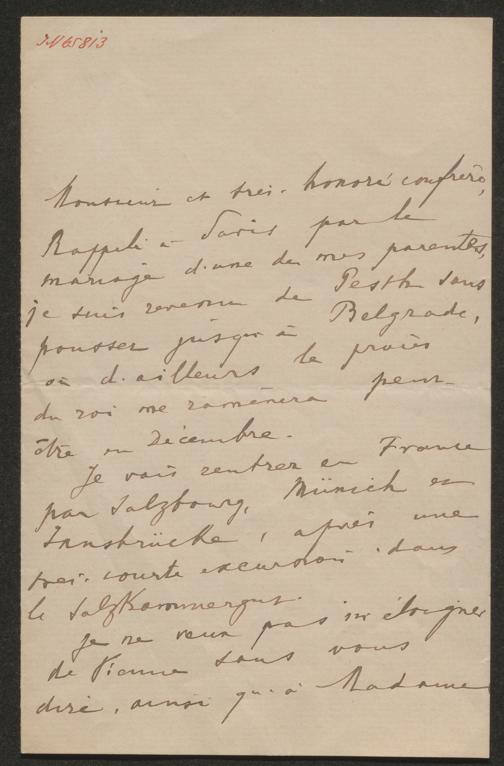 I.N 65813
Monsieur et très-honoré confrère,
Rappelé à Paris par le
mariage d'une de mes parentes,
je suis revenu de Pesth sans
pousser jusqu'à Belgrade,
où d'ailleurs le procès
du roi me ramènera peut-
être en Décembre.
Je vais rentrer en France
par Salzbourg, Münich et
Innsbrücke, après une
très-courte excursion dans
le Salzkammergut.
Je ne veux pas m'éloigner
de Vienne sans vous
dire, ainsi qu'à Madame